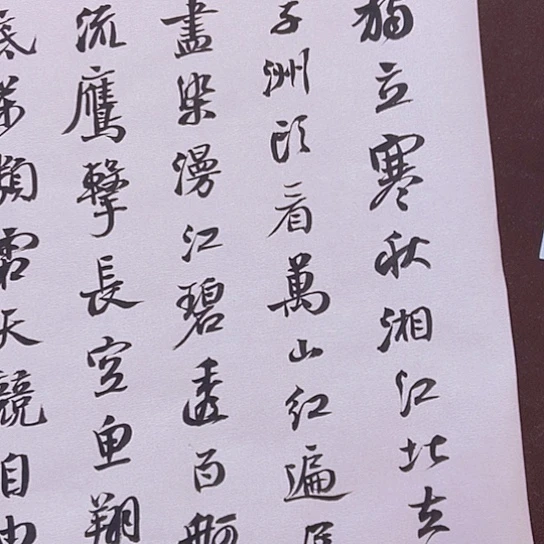 獨立寒秋湘江北去
子洲頭看萬山紅遍層
盡染漫江碧透百舸
流鷹擊長空魚翔
底萬類霜天競自由